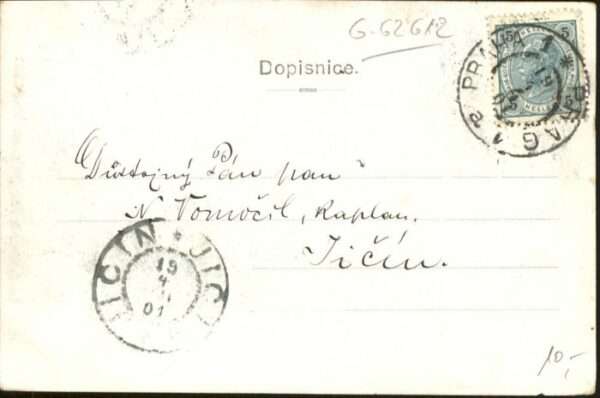 G-62612
Dopisnice.
5
PRAG 1
Důstojný Pán pan
N. Tomočil, kaplan.
Jičín.
JIČÍN * JIČÍN
19
4
01
10,-